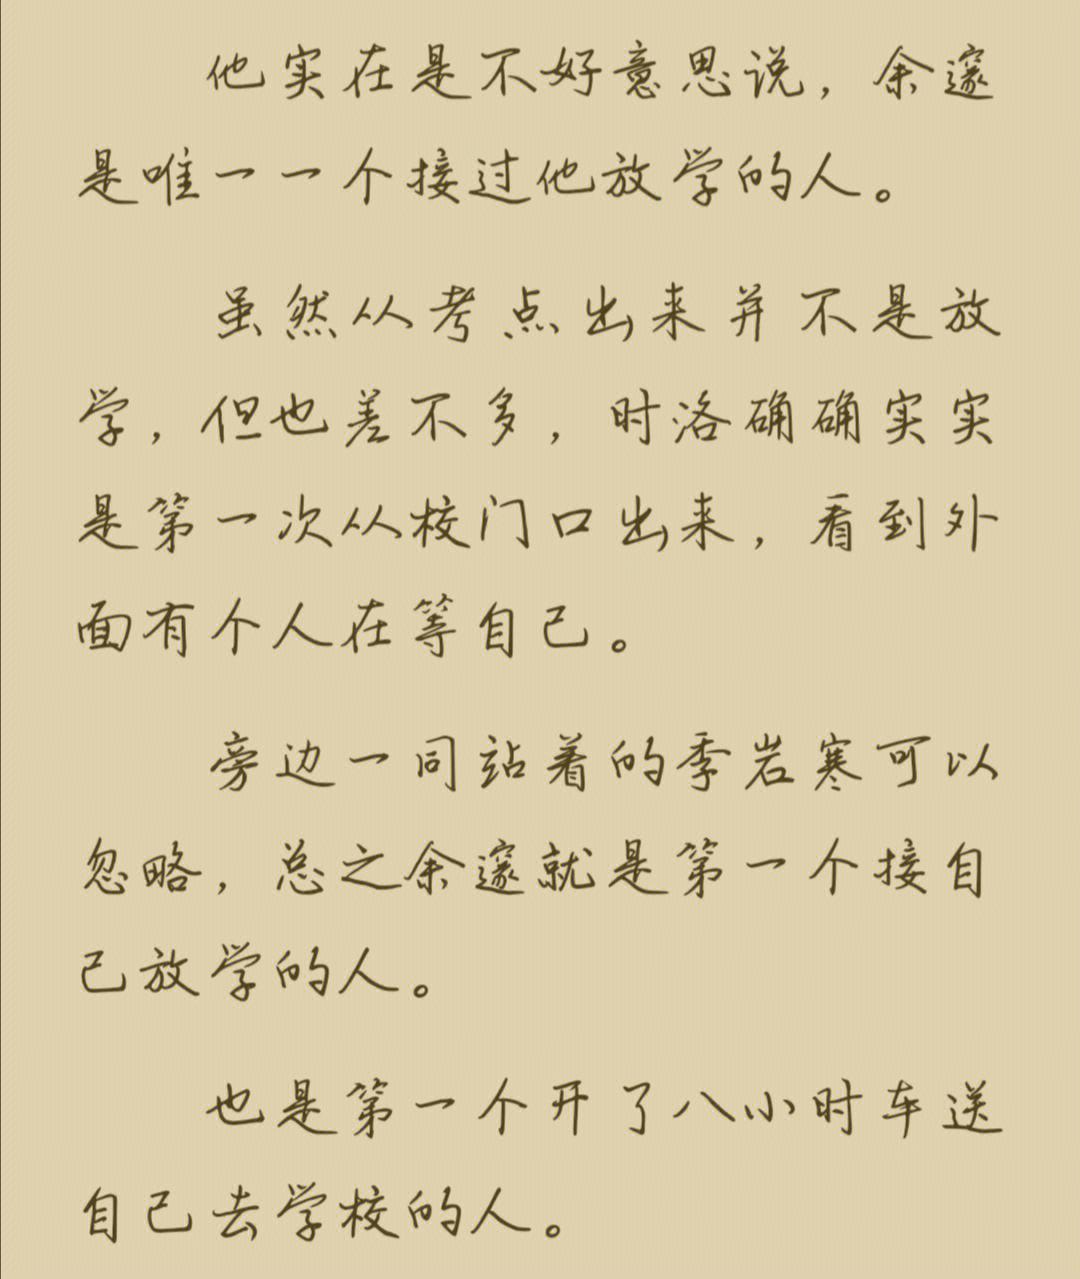 他实在是不好意思说，余邃
是唯一一个接过他放学的人。
虽然从考点出来并不是放
学，但也差不多，时洛确确实实
是第一次从校门口出来，看到外
面有个人在等自己。
旁边一同站着的季岩寒可以
忽略，总之余邃就是第一个接自
己放学的人。
也是第一个开了八小时车送
自己去学校的人。